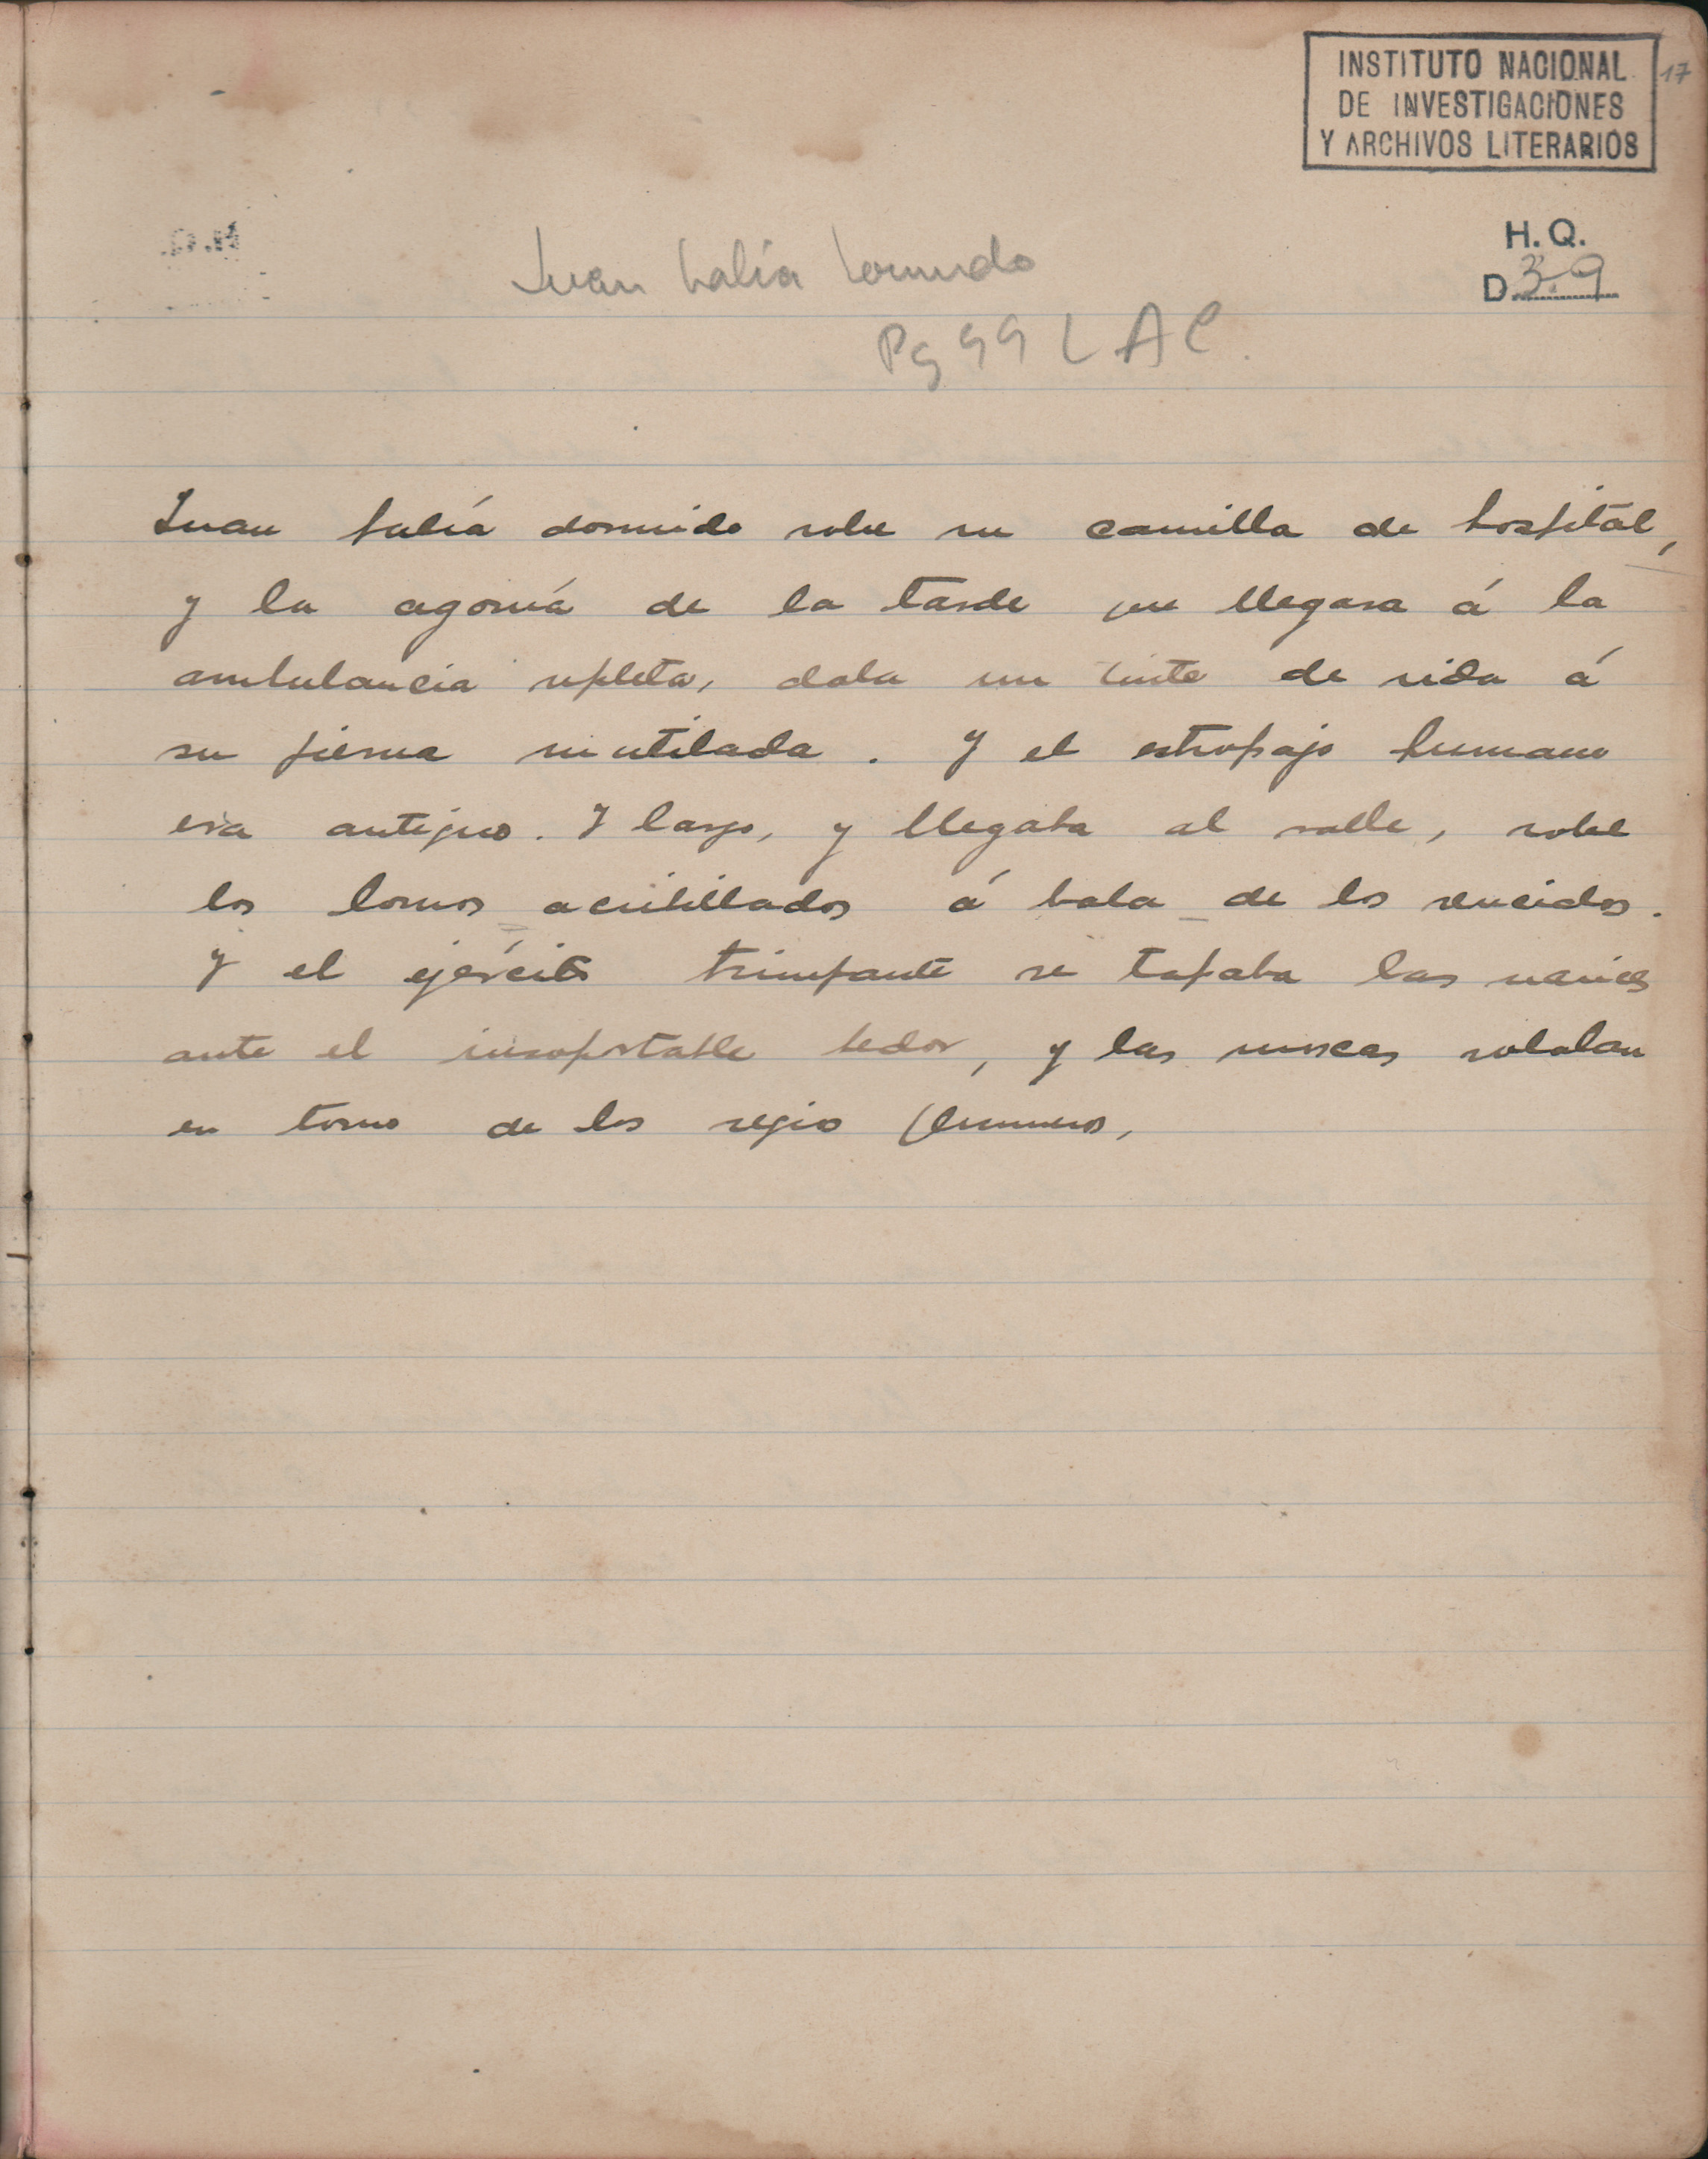 INSTITUTO NACIONAL
DE INVESTIGACIONES
Y ARCHIVOS LITERARIOS
17
H.Q.
D. 39
Juan había dormido
Pg 99 LAC.
Juan había dormido sobre su camilla de hospital,
y la agonía de la tarde que llegara á la
ambulancia repleta, daba un tinte de vida á
su pierna mutilada. Y el estropajo humano
era antiguo. Y largo, y llegaba al valle, sobre
los lomos acribillados á bala de los vencidos.
Y el ejército triunfante se tapaba las narices
ante el insoportable hedor, y las moscas volaban
en torno de los regio